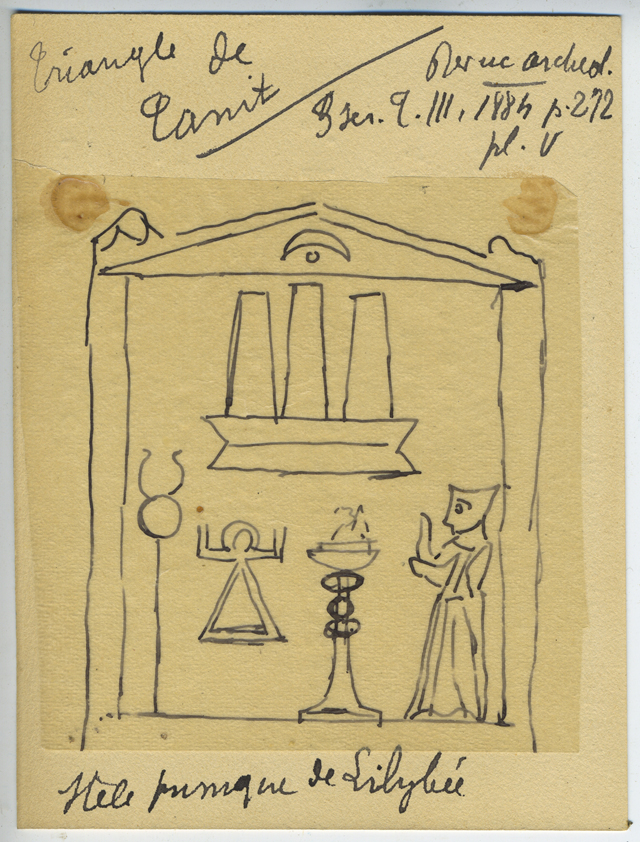 Triangle de
Tanit
Revue archeol.
3 ser. T. III, 1884 p. 272
pl. V
Stele punique de Lilybée